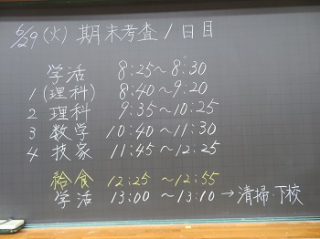 6/29(火)期末考査1日目
学活 8:25~8:30
1(理科) 8:40~9:20
2 理科 9:35~10:25
3 数学 10:40~11:30
4 技家 11:45~12:25
給食 12:25~12:55
学活 13:00~13:10→清掃・下校